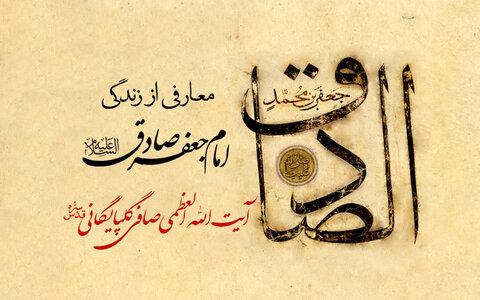 الصادق
جعفر بن محمّدٍ
معارفی از زندگی
امام جعفر صادق علیه‌السلام
آیت الله العظمی صافی گلپایگانی قدس‌سره